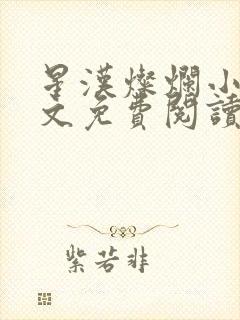 星漢燦爛小
文免費閱讀
紫若非